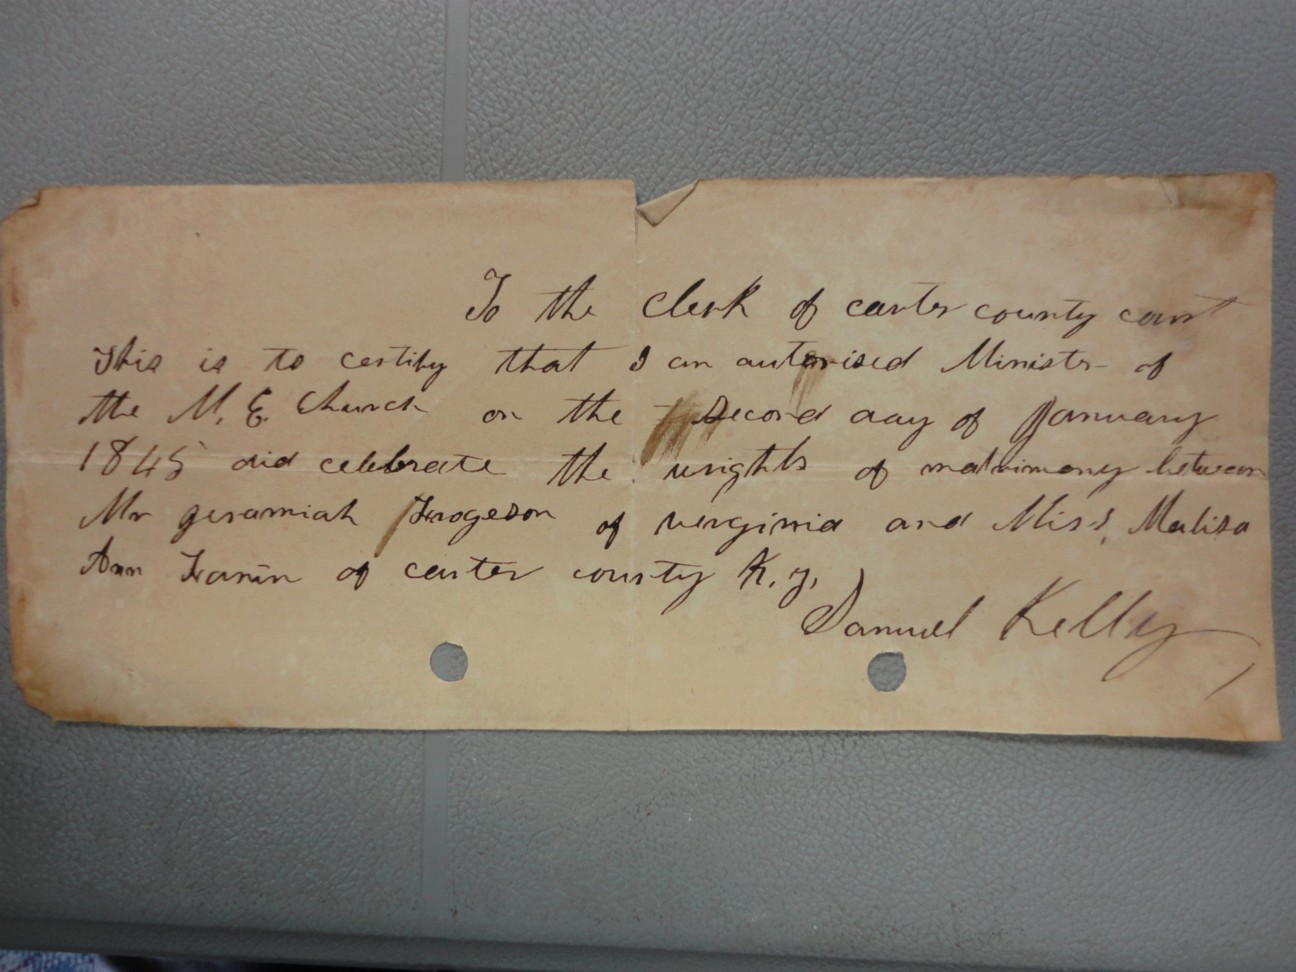 To the Clerk of carter county court
This is to certify that I an autorised Minister of
the M. E. Church on the Second day of January
1845 did celebrate the wrights of matrimony between
Mr geramiah Frogeson of verginia and Miss, Malisa
Ann Fanin of carter county K.y,
Samuel Kelly